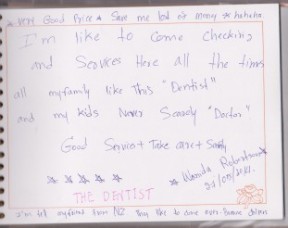 * Very Good Price * Save me lod of money * hahaha
I'm like to Come Checking
and Services Here all the time
all my family like this "Dentist"
and my kids Never Scarely "Doctor"
Good Service + Take care + Safty
* Wanida Robertson *
* * * * *
THE DENTIST
I'm tell my friend from NZ they like to come here